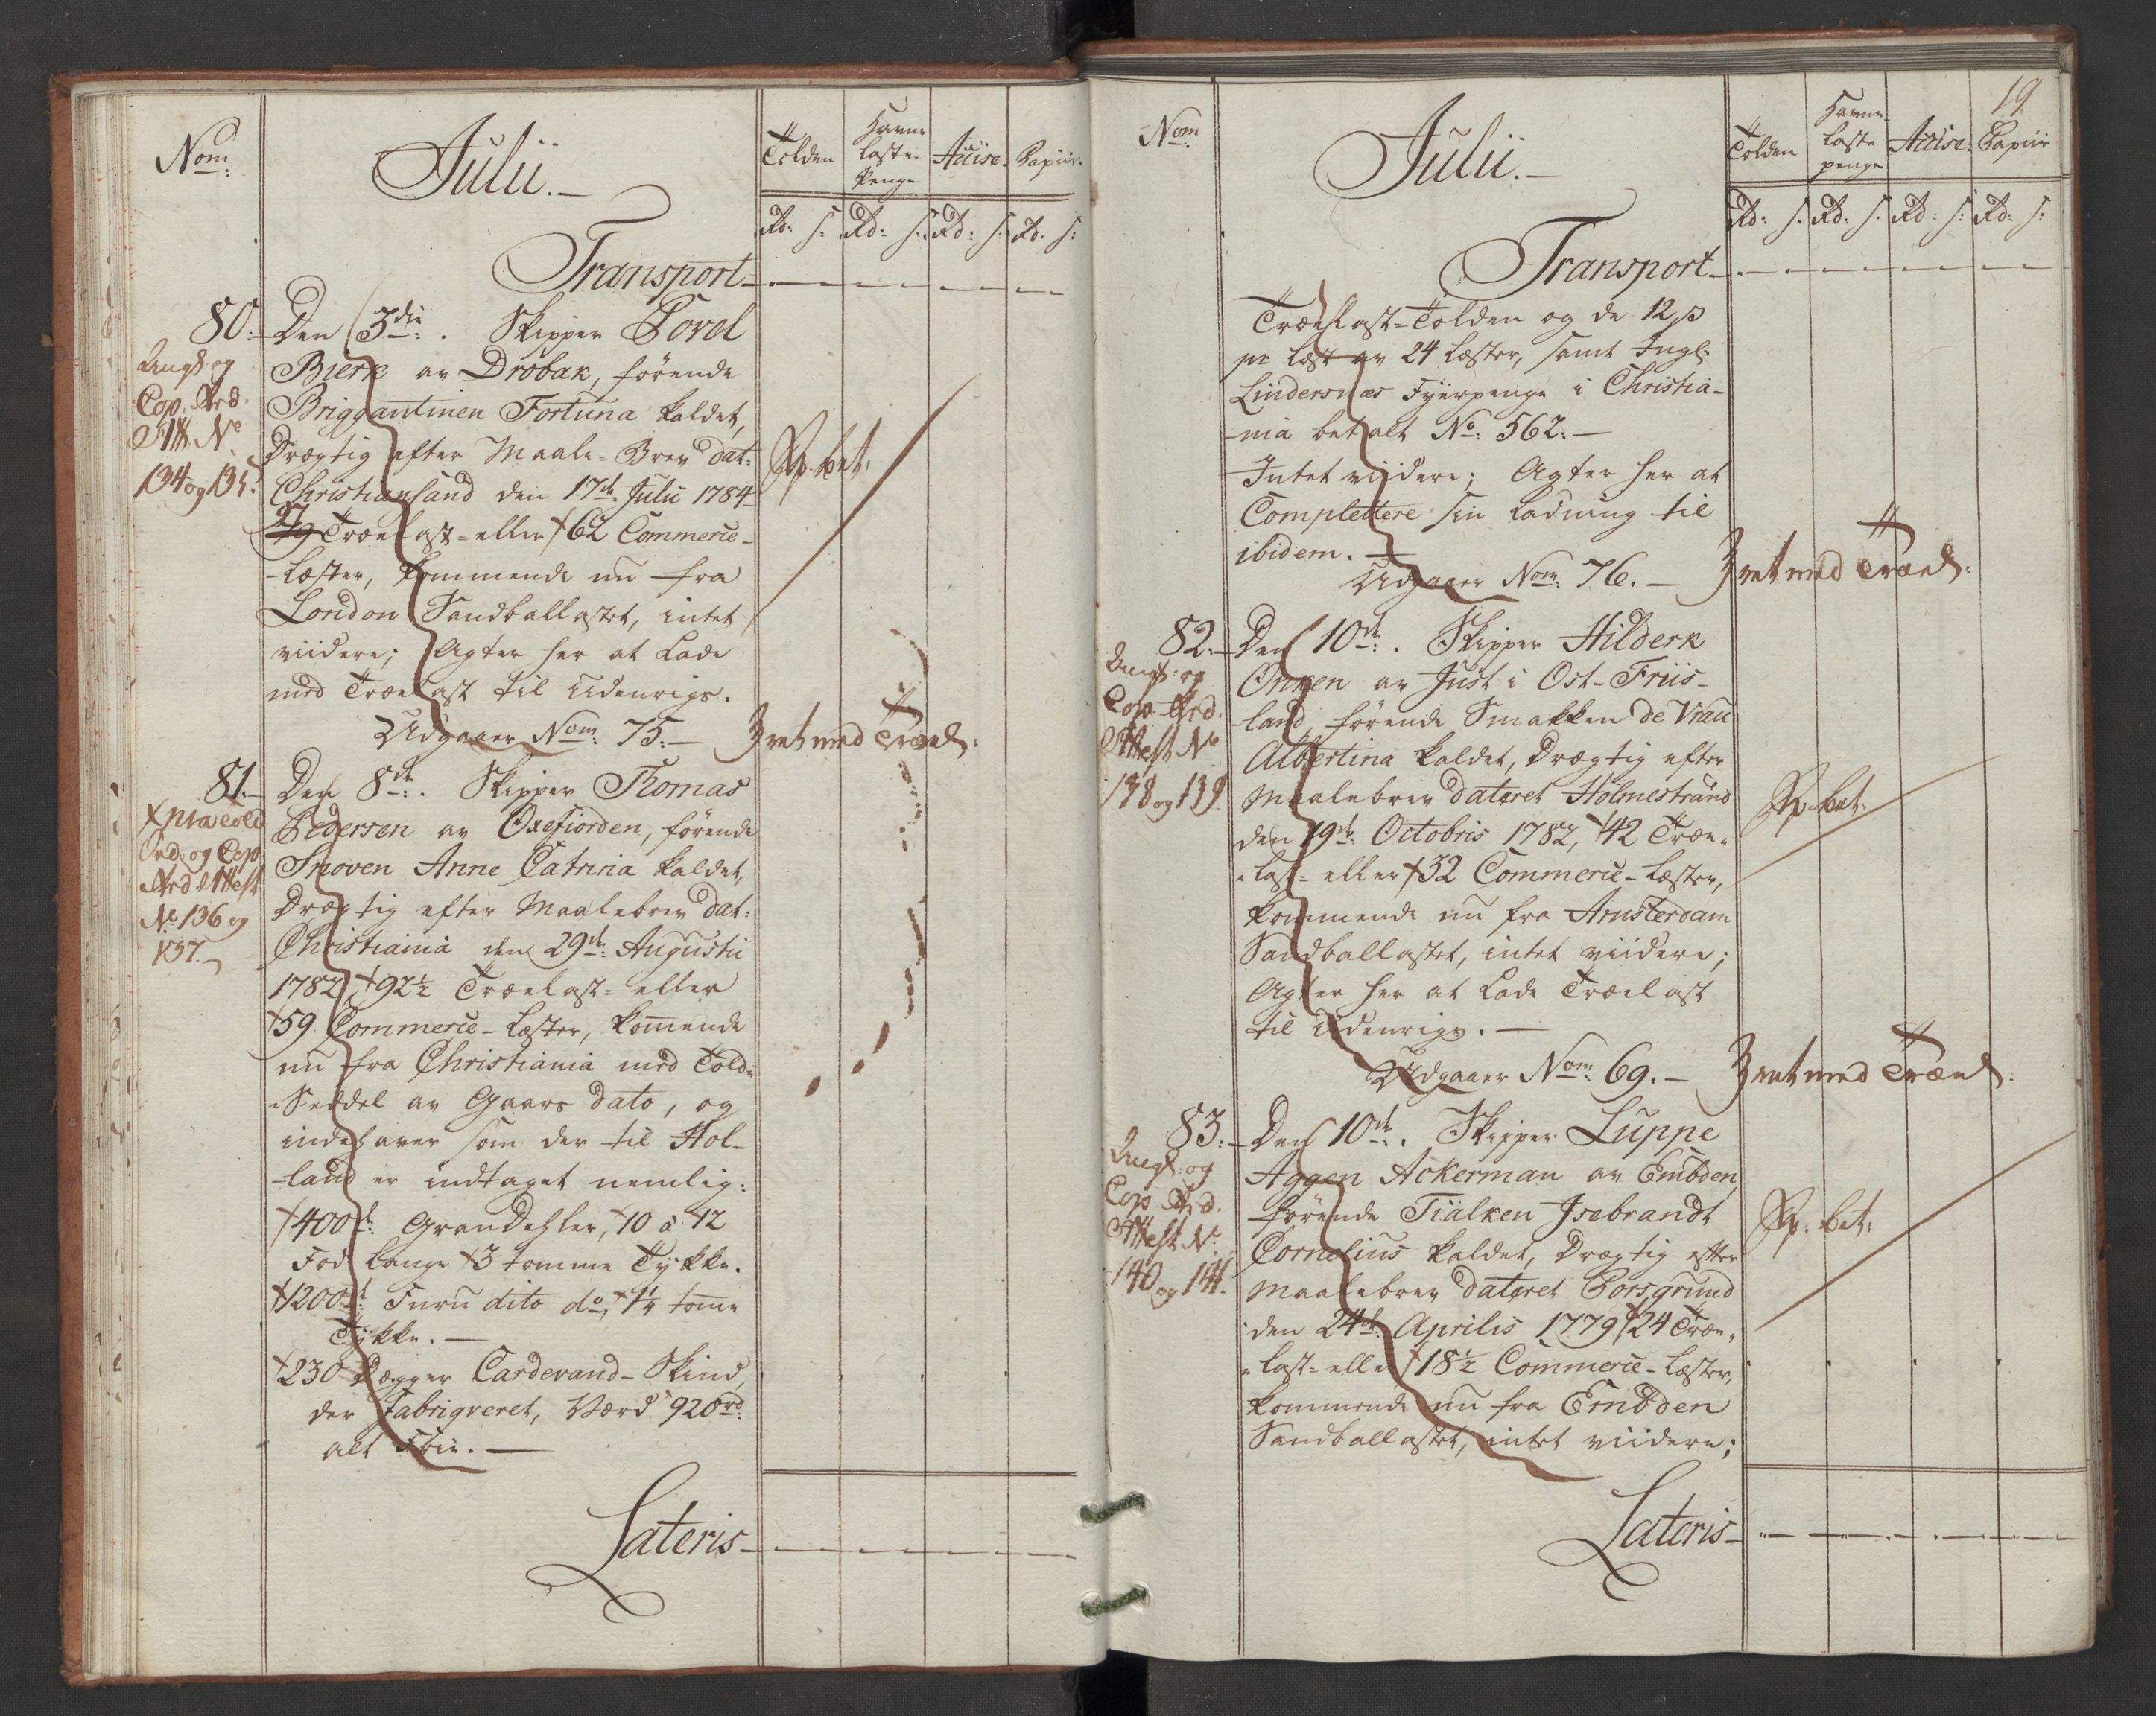 Nom:
Julii.
Tolden
Havne
Laste-
Penge
Accise.
Papiir.
Rd: s: Rd: s: Rd: s: Rd: s:
Transport
80. Den 3die. Skipper Povel
Bierk av Drøbak, førende
Briggantinen Fortuna kaldet,
Drægtig efter Maale-Brev dat:
Christiansand den 17de Julii 1784
Trælast- eller 62 Commerce-
Læster, kommende nu fra
London Sandballastet, intet
viidere; Agter her at Lade
med Trælast til Udenrigs.
Udgaaer Nom: 75.
og
Cop. Ard.
Att. No
134 og 135.
Sp. bet:
med Træel:
81. Den 8de. Skipper Thomas
Pedersen av Oxefiorden, førende
Snoven Anne Catrina kaldet,
Drægtig efter Maalebrev dat:
Christiania den 29de Augustii
1782, 92½ Trælast- eller
59 Commerce-Læster, kommende
nu fra Christiania med Told-
Seddel av Gaars dato, og
indehaver som der til Hol-
land er indtaget nemlig:
400 st. Grandehler, 10 a 12
Fod Lange 3 tomme Tykke.
1200 st: Furu dito do, 1¼ tomme
Tykke.
230 Degger Cardevand-Skind,
der Fabriqveret, Værd 920 rd:
alt Frie.
Xpia told
Sed: og Cop
Ard Attest
No 136 og
137.
Lateris
19.
Nom
Julii.
Tolden
Havne-
Laste
penge
Accise.
Papiir
Rd: s. Rd: s. Rd: s: Rd: s:
Transport
Trælast-Tolden og de 12 s
pr Læst av 24 Læster, samt Ingl:
Lindersnæs Fyerpenge i Christia-
nia betalt No: 562.
Intet viidere; Agter her at
Complettere sin Ladning til
ibidem.
Udgaaer Nom: 76.
med Træel:
82. Den 10de. Skipper Hilderk
Onken av Just i Ost-Friis-
land, førende Smakken de Vrau
Albertina kaldet, Drægtig efter
Maalebrev dateret Holmestrand
den 19de Octobris 1782, 42 Træ-
Last- eller 32 Commerce-Læster,
kommende nu fra Amsterdam
Sandballastet, intet viidere;
Agter her at Lade Trælast
til Udenrigs.
Udgaaer Nom: 69.
og
Cop. Ard.
Attest No
138 og 139
Sp. bet:
med Træel:
83. Den 10de. Skipper Luppe
Aggen Ackerman av Embden,
førende Tialken Isebrandt
Cornelius kaldet, Drægtig efter
Maalebrev dateret Porsgrund
den 24de Aprilis 1779, 24 Træ-
Last- eller 18½ Commerce-Læster,
kommende nu fra Embden
Sandballastet, intet viidere;
og
Cop Ard.
Attest No
140 og 141.
Sp. bet:
Lateris